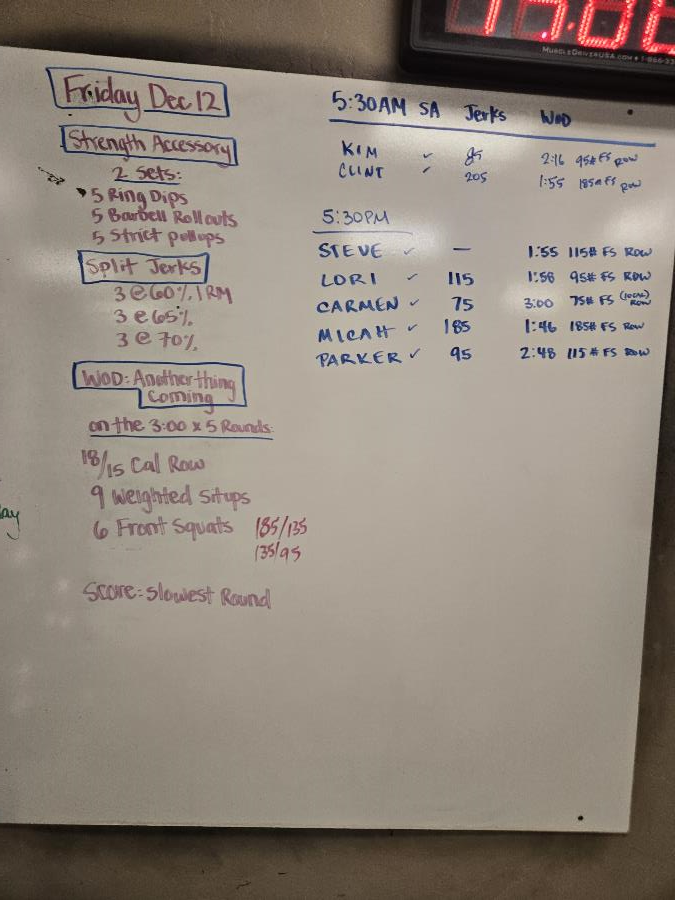 Friday Dec 12
Strength Accessory
2 Sets:
5 Ring Dips
5 Barbell Rollouts
5 Strict pullups
Split Jerks
3 @ 60% 1RM
3 @ 65%
3 @ 70%
WOD: Another thing
Coming
on the 3:00 x 5 Rounds:
18/15 Cal Row
9 Weighted Situps
6 Front Squats 185/135
135/95
Score: Slowest Round
5:30AM SA Jerks WOD
KIM ✓ 85 2:16 95# FS ROW
CLINT ✓ 205 1:55 185# FS ROW
5:30PM
STEVE ✓ — 1:55 115# FS ROW
LORI ✓ 115 1:58 95# FS ROW
CARMEN ✓ 75 3:00 75# FS (10CAL) ROW
MICAH ✓ 185 1:46 185# FS ROW
PARKER ✓ 95 2:48 115# FS ROW
MUSCLEDRIVERUSA.COM • 1-866-